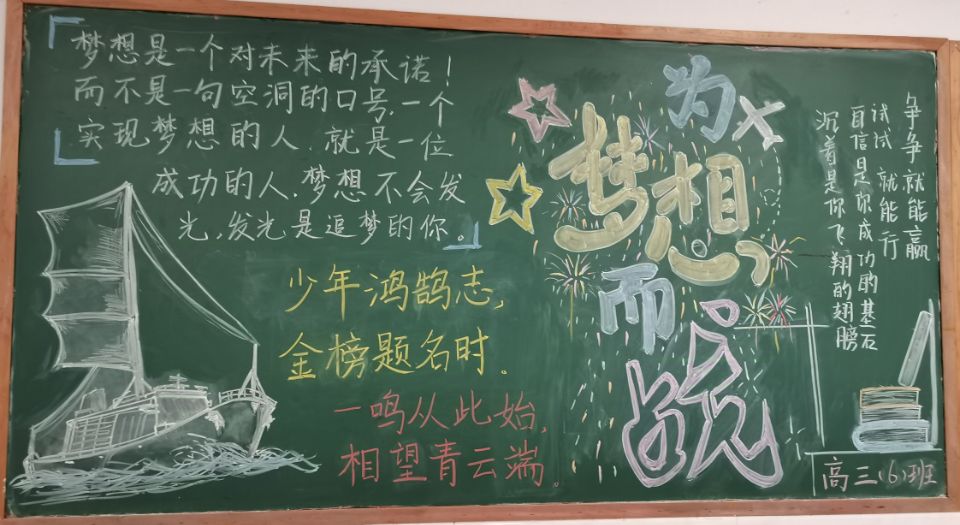 梦想是一个对未来的承诺！
而不是一句空洞的口号，一个
实现梦想的人，就是一位
成功的人，梦想不会发
光，发光是追梦的你。
少年鸿鹄志，
金榜题名时。
一鸣从此始，
相望青云端。
为
梦想
而
战
争争就能赢
试试就能行
自信是你成功的基石
沉着是你飞翔的翅膀
高三(6)班